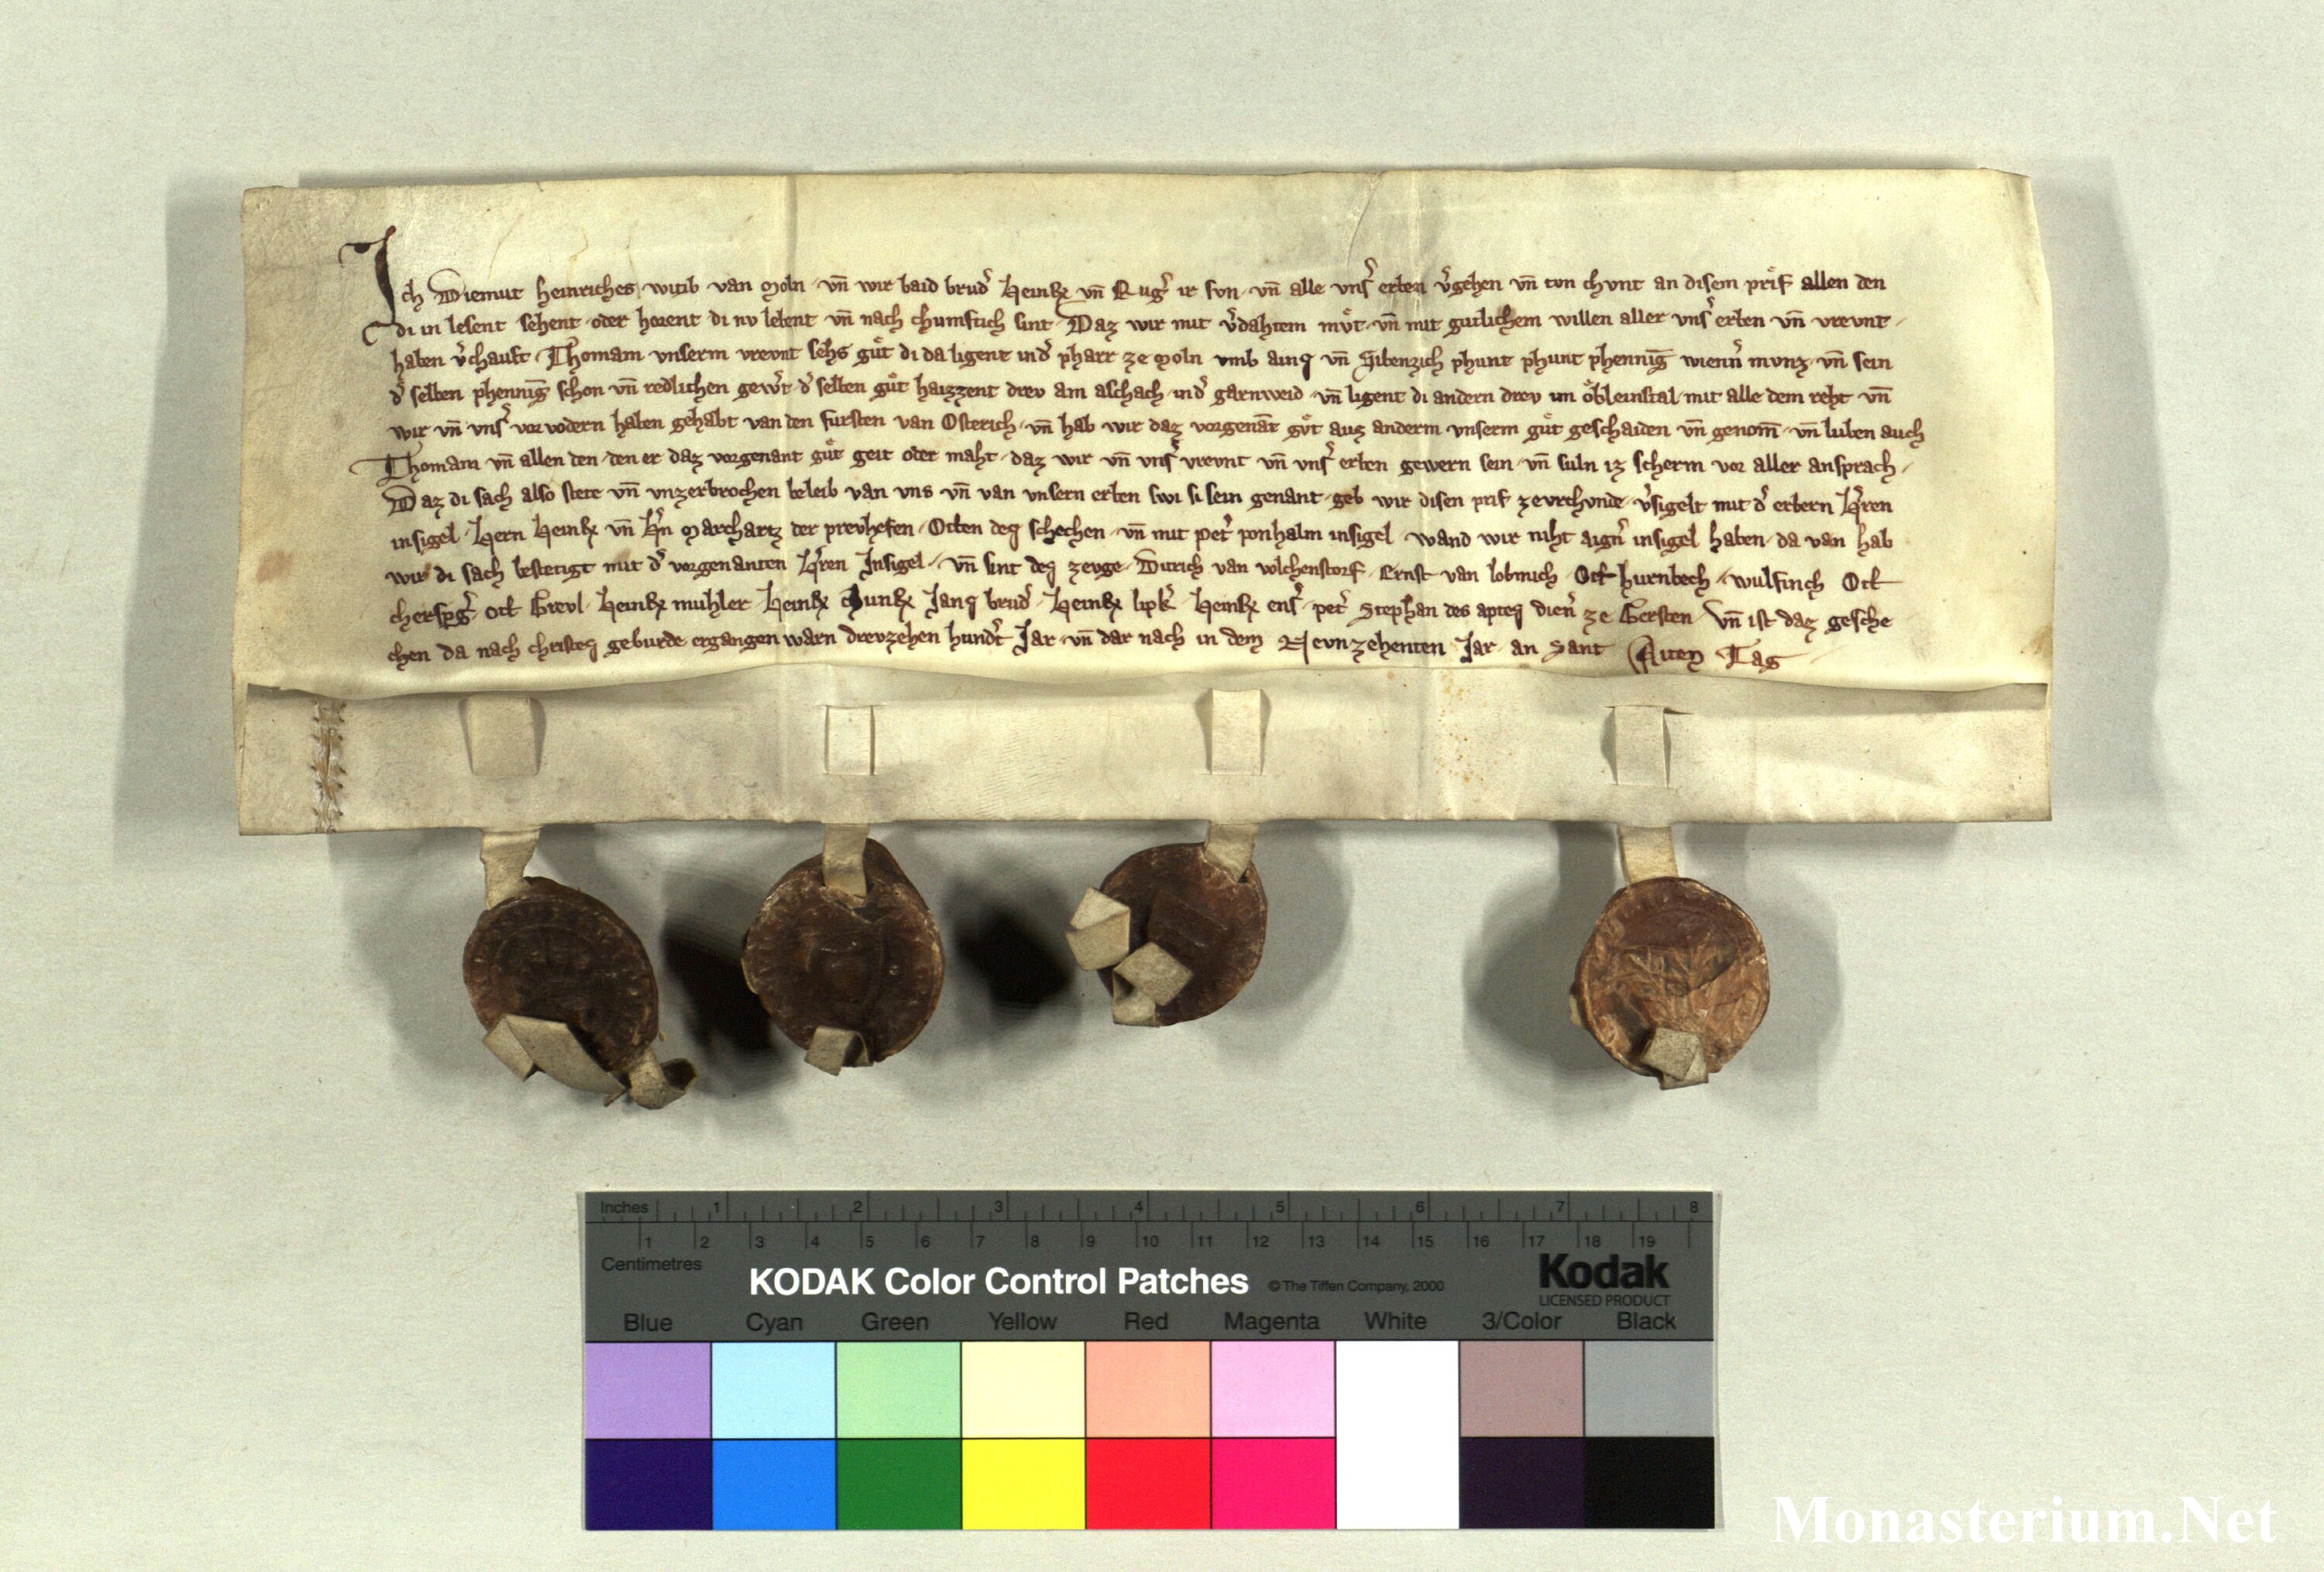 Ich Diemut heinriches witib van Moln · vn̄ wir baid brud᷑ Heinr̄ vn̄ Rug᷑ ir sun · vn̄ alle vns᷑ erben v᷑gehen vn̄ tvn chvnt an disem prif allen den
di in lesent sehent · oder horent di nv lebent vn̄ nach chumftich sint · Daz wir mit v᷑dahtem mvͦt · vn̄ mit gutlichem willen aller vns᷑ erben vn̄ vrevnt ·
haben v᷑chauft · Thomam vnserm vrevnt sehs guͤt di da ligent in d᷑ pharr ze Moln vmb ains vn̄ Sibenzich phunt phunt phenning̅ wienn᷑ mvnz · vn̄ sein
d᷑ selben phenning̅ schon vn̄ redlichen gew᷑t · d᷑ selben guͤt haizzent drev am aschach · in d᷑ garnweid · vn̄ ligent di andern drev im oͤbleinstal · mit alle dem reht vn̄
wir vn̄ vns᷑ vorvodern haben gehabt van den fursten van Osterich · vn̄ hab wir daz vorgenāt guͤt auz anderm vnserm guͤt geschaiden vn̄ genom̄ · vn̄ luben auch
Thomam vn̄ allen den · den er daz vorgenant guͤt geit oder maht · daz wir vn̄ vns᷑ vrevnt vn̄ vns᷑ erben gewern sein · vn̄ suln iz scherm vor aller ansprach ·
Daz di sach also stete vn̄ vnzerbrochen beleib van vns vn̄ van vnsern erben swi si sein genant · geb wir disen prif ze vrchvnde · v᷑sigelt mit d᷑ erbern H᷑ren
insigel · Hern Heinr̄ vn̄ H᷑n Marchartz der prevhefen · Otten des schechen · vn̄ mit Pet᷑ ponhalm insigel · wand wir niht aign᷑ insigel haben · da van hab
wir di sach bestetigt mit d᷑ vorgenanten H᷑ren Insigel · vn̄ sint des zevge · Ditrich van volchenstorf · Ernst van lobnich · Ott hurnbech · wulfinch Ott
Ott Grevl · Heinr̄ muhler Heinr̄ chunr̄ Jans brud᷑ · Heinr̄ Heinr̄ ens᷑ · pet᷑ Stephan des aptes dien᷑ ze Gersten · Vn̄ ist daz gesche
chen da nach christes geburde · ergangen warn drevzehen hund᷑t Jar · vn̄ dar nach in dem Nevnzehenten Jar · an Sant Tag
Inches 1 2 3 4 5 6 7 8
1 2 3 4 5 6 7 8 9 10 11 12 13 14 15 16 17 18 19
Centimetres
KODAK Color Control Patches © The Tiffen Company, 2000 Kodak
LICENSED PRODUCT
Blue Cyan Green Yellow Red Magenta White 3/Color Black
Monasterium.Net